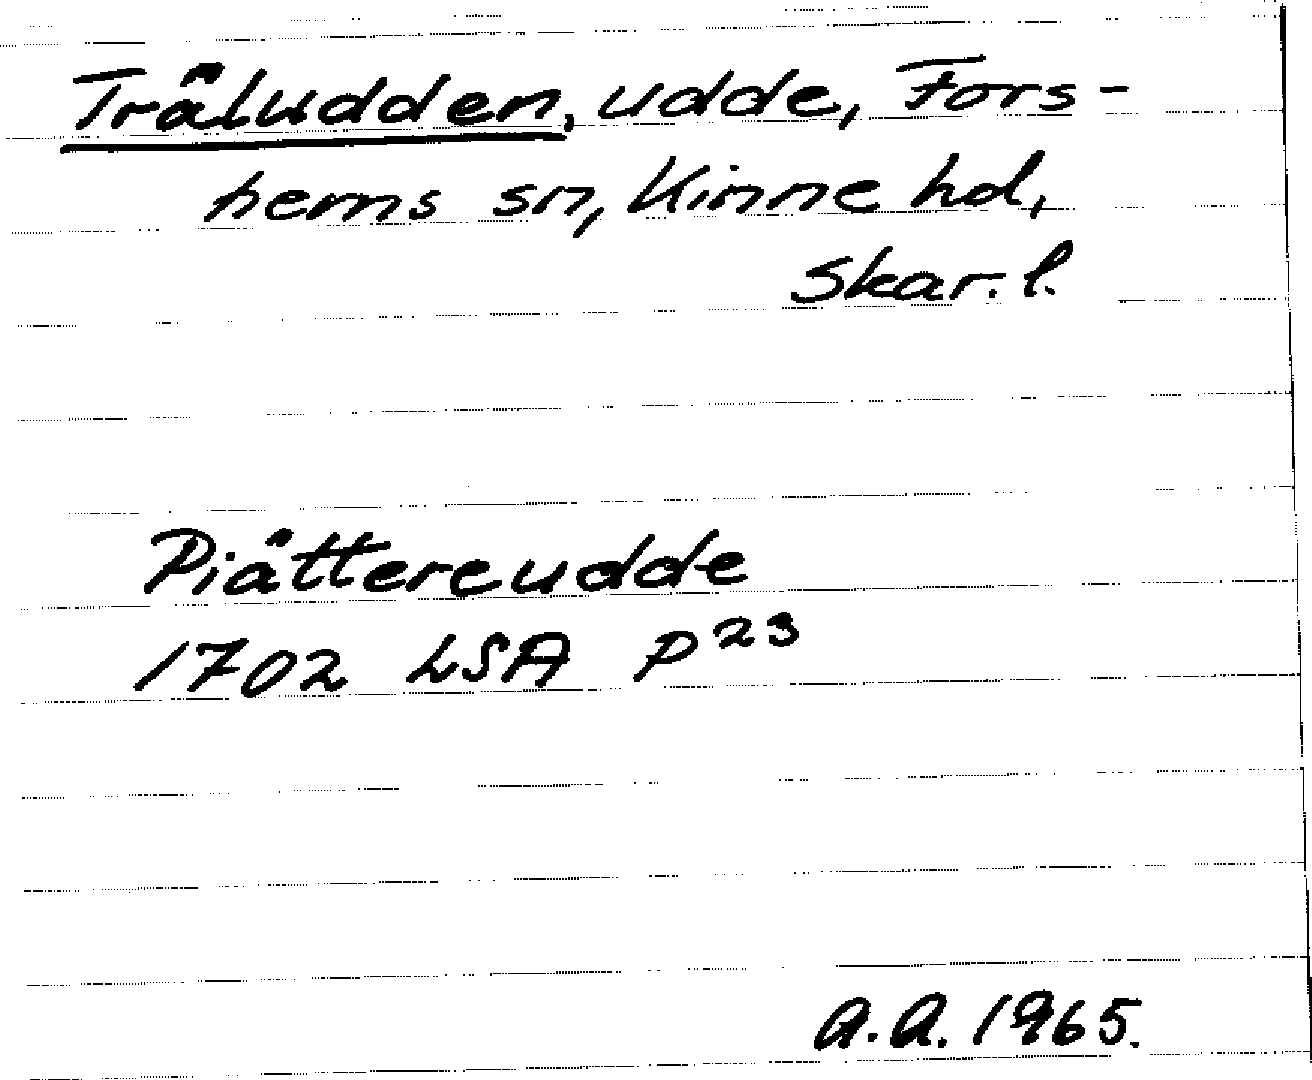 Träludden, udde, Fors-
hems sn, Kinne hd,
Skar. l.
Piättereudde
1702 LSA P 23
A.A. 1965.